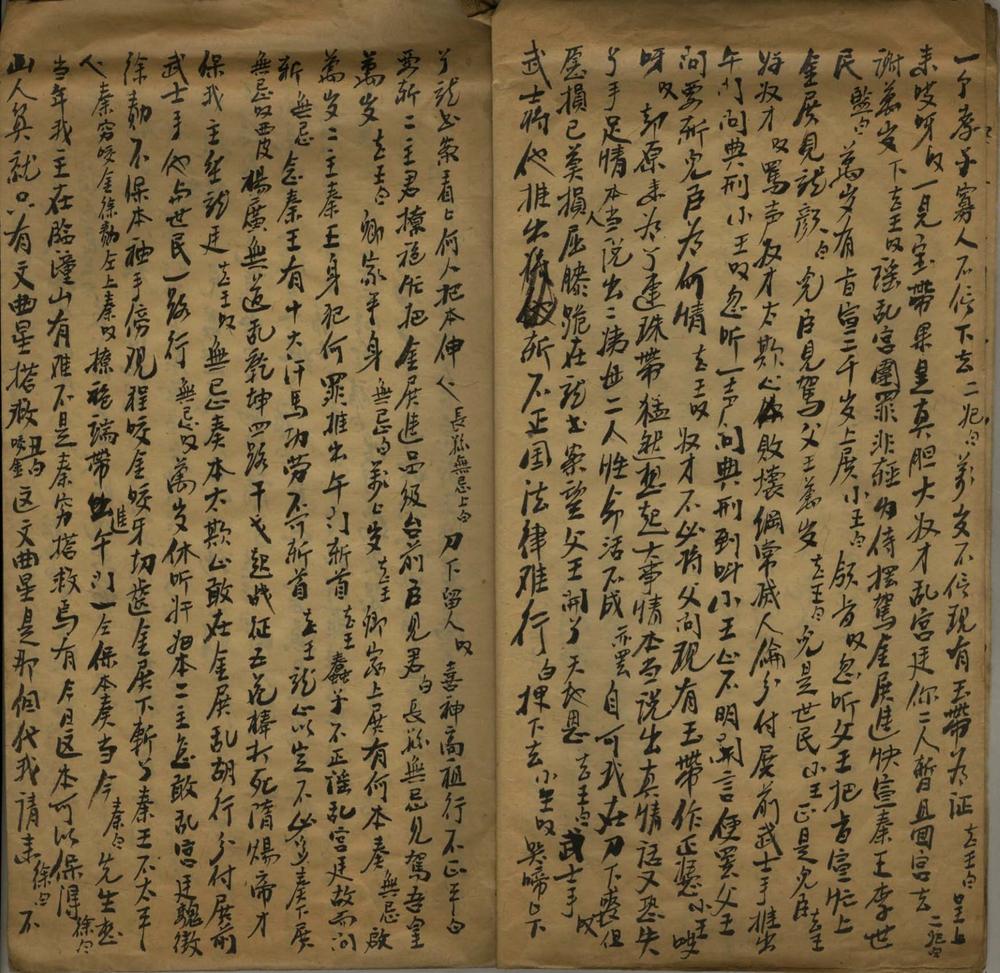 一个孝子寡人不信下去二妃白万岁不信现有玉带为证去王白呈上
来哎呀又一见宝带果是真胆大奴才乱宫廷你二人暂且回宫去二妃白
谢万岁下去王又谣乱宫围罪非轻内侍摆驾金展进快宣秦王李世
民监白万岁有旨宣二千岁上展小王白领旨又忽听父王把旨宣忙上
金展见龙颜白儿臣见驾父王万岁去王白儿是世民小王正是儿臣去王
好奴才又骂声奴才太欺心败壞綱常滅人倫分付展前武士手推出
午门问典刑小王又忽听一声问典刑到叫小王心不明開言便罢父王
问要斩儿臣为何情去王又奴才不必将父问现有玉带作正憑小王哎
呀又却原来为了連珠带猛然想起大事情本当说出真情话又恐失
了手足情本当说出二姨母二人性命活不成示罢自可我在刀下丧但
愿損己莫損人屈膝跪在龙书案望父王開了天地恩去王白武士手又
武士将他推出斩不正国法律难行白押下去小王又哭啼啼下
了龙书案看上何人把本伸人長孫無忌上白刀下留人又喜神高祖行不正平白
要斩二主君撩袍忙把金展進品級台前臣見君白長孫無忌见駕吾皇
萬岁去王白卿家平身無忌白万々岁去王卿家上展有何本奏無忌啟
萬岁二主秦王身犯何罪推出午门斩首去王蠢子不正谣乱宫廷故而问
斩無忌念秦王有十大汗馬功劳不可斩首去王龙心以定不必多奏下展
無忌又西皮楊廣無道乱乾坤四路干戈起战征五花棒打死隋煬帝才
保我主坐龙廷去王又無忌奏本太欺心敢在金展乱胡行分付展前
武士手他与世民一路行無忌又萬岁休听奸妃本二主怎敢乱宫廷魏徵
徐勣不保本袖手傍观程咬金咬牙切齒金展下斬了秦王不太平
人秦窮咬金徐勣仝上秦又撩袍端带進午门一仝保本奏当今秦白先生徐白
当年我王在临潼山有难不是秦窮搭救焉有今日这本可以保得徐白不
山人算就只有文曲星搭救丑白咬金这文曲星是那個代我请来